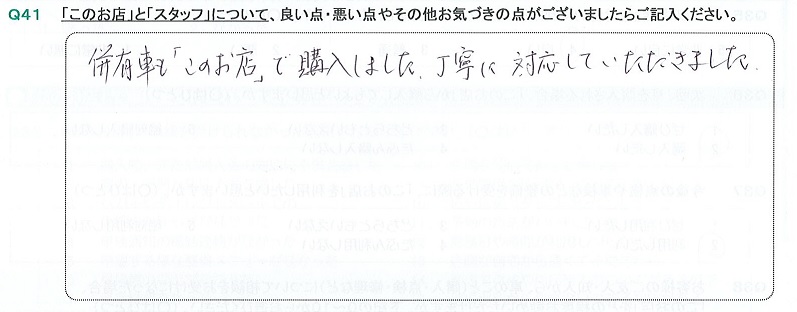 Q41 「このお店」と「スタッフ」について、良い点・悪い点やその他お気づきの点がございましたらご記入ください。
併有車も「このお店」で購入しました。丁寧に対応していただきました。